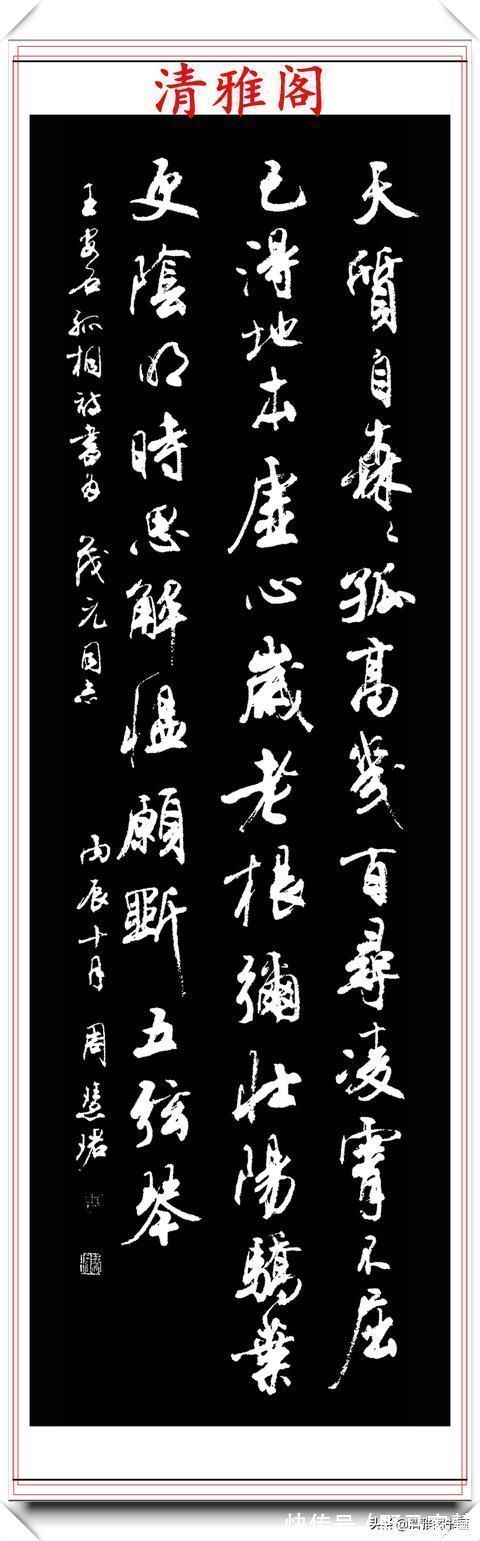 清雅阁
天質自森〻孤高幾百尋凌霄不屈
已得地本虛心歲老根彌壯陽驕葉
更陰明時思解愠願斲五弦琴
王安石孤桐詩書為 茂元同志 丙辰十月 周慧珺
快传号 /
头条 @清雅